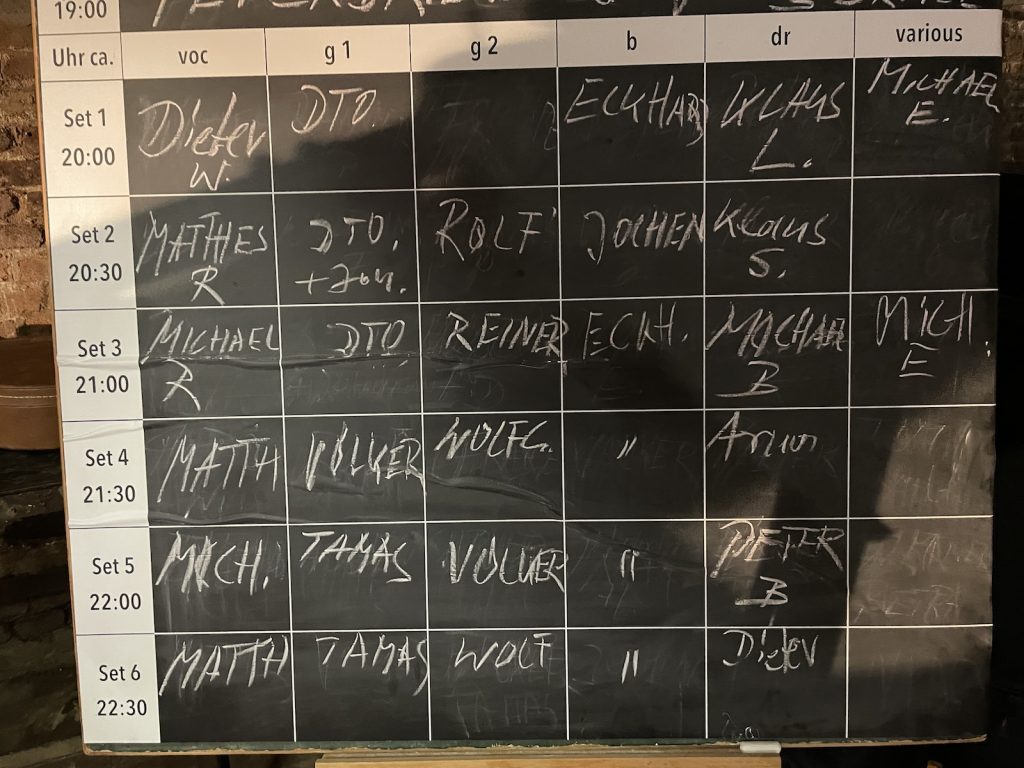 19:00
Uhr ca. voc g 1 g 2 b dr various
Set 1 Dieter DTO. ECKHARD KLAUS MICHAEL
20:00 W. L. E.
Set 2 MATTHES DTO. ROLF JOCHEN Klaus
20:30 R + Jon. S.
Set 3 MICHAEL DTO REINER ECKH. MICHAEL MICH.
21:00 R B E
Set 4 MATTH VOLKER WOLFG. " Armin
21:30
Set 5 MICH. TAMAS VOLKER " PETER
22:00 B
Set 6 MATTH TAMAS WOLF " Dieter
22:30